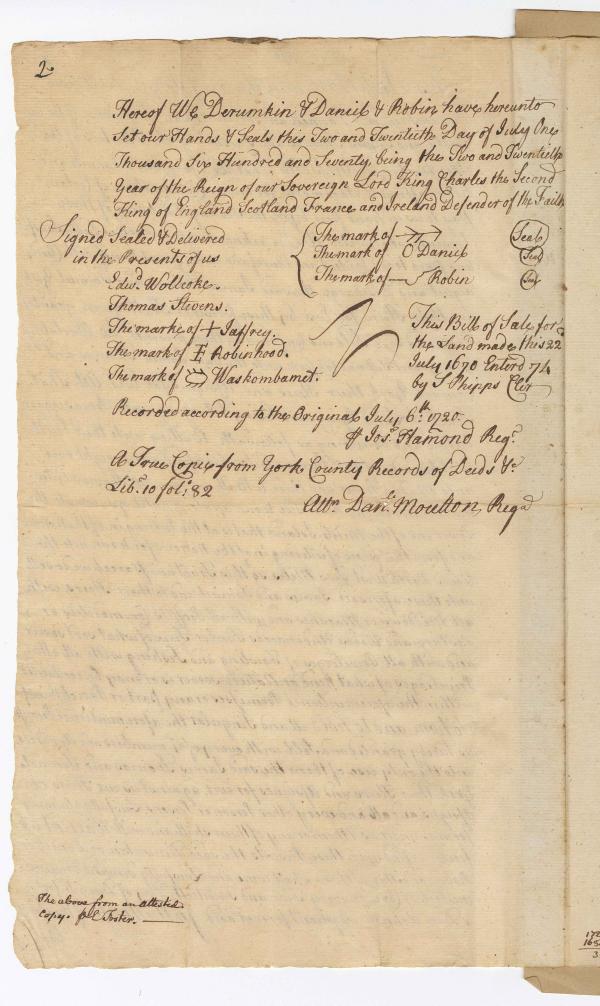 2
Hereof We Derumkin & Daniel & Robin have hereunto
Set our Hands & Seals this Two and Twentieth Day of July One
Thousand Six Hundred and Seventy, being the Two and Twentieth
Year of the Reign of our Sovereign Lord King Charles the Second
King of England Scotland France and Ireland Defender of the Faith
Signed Sealed & Delivered
in the Presents of us
Edwd Wollcoke.
Thomas Stevens.
The marke of + Jaffrey.
The mark of Robinhood.
The mark of Waskombamet.
The mark of Seal
The mark of Daniel Seal
The mark of Robin Seal
This Bill of Sale for
the Land made this 22
July 1670 Enterd 74
by S Phipps Cler
Recorded according to the Original July 6th 1720.
Jos. Hamond Regr.
A True Copie from York County Records of Deeds &c
Libr. 10 fol: 82
Attr Danl. Moulton, Regd
The above from an attested
Copy. pr Foster.
172